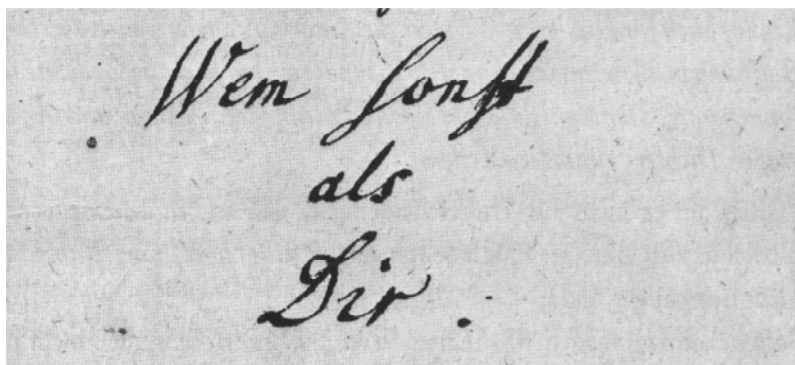 Wem ſonſt
als
Dir.